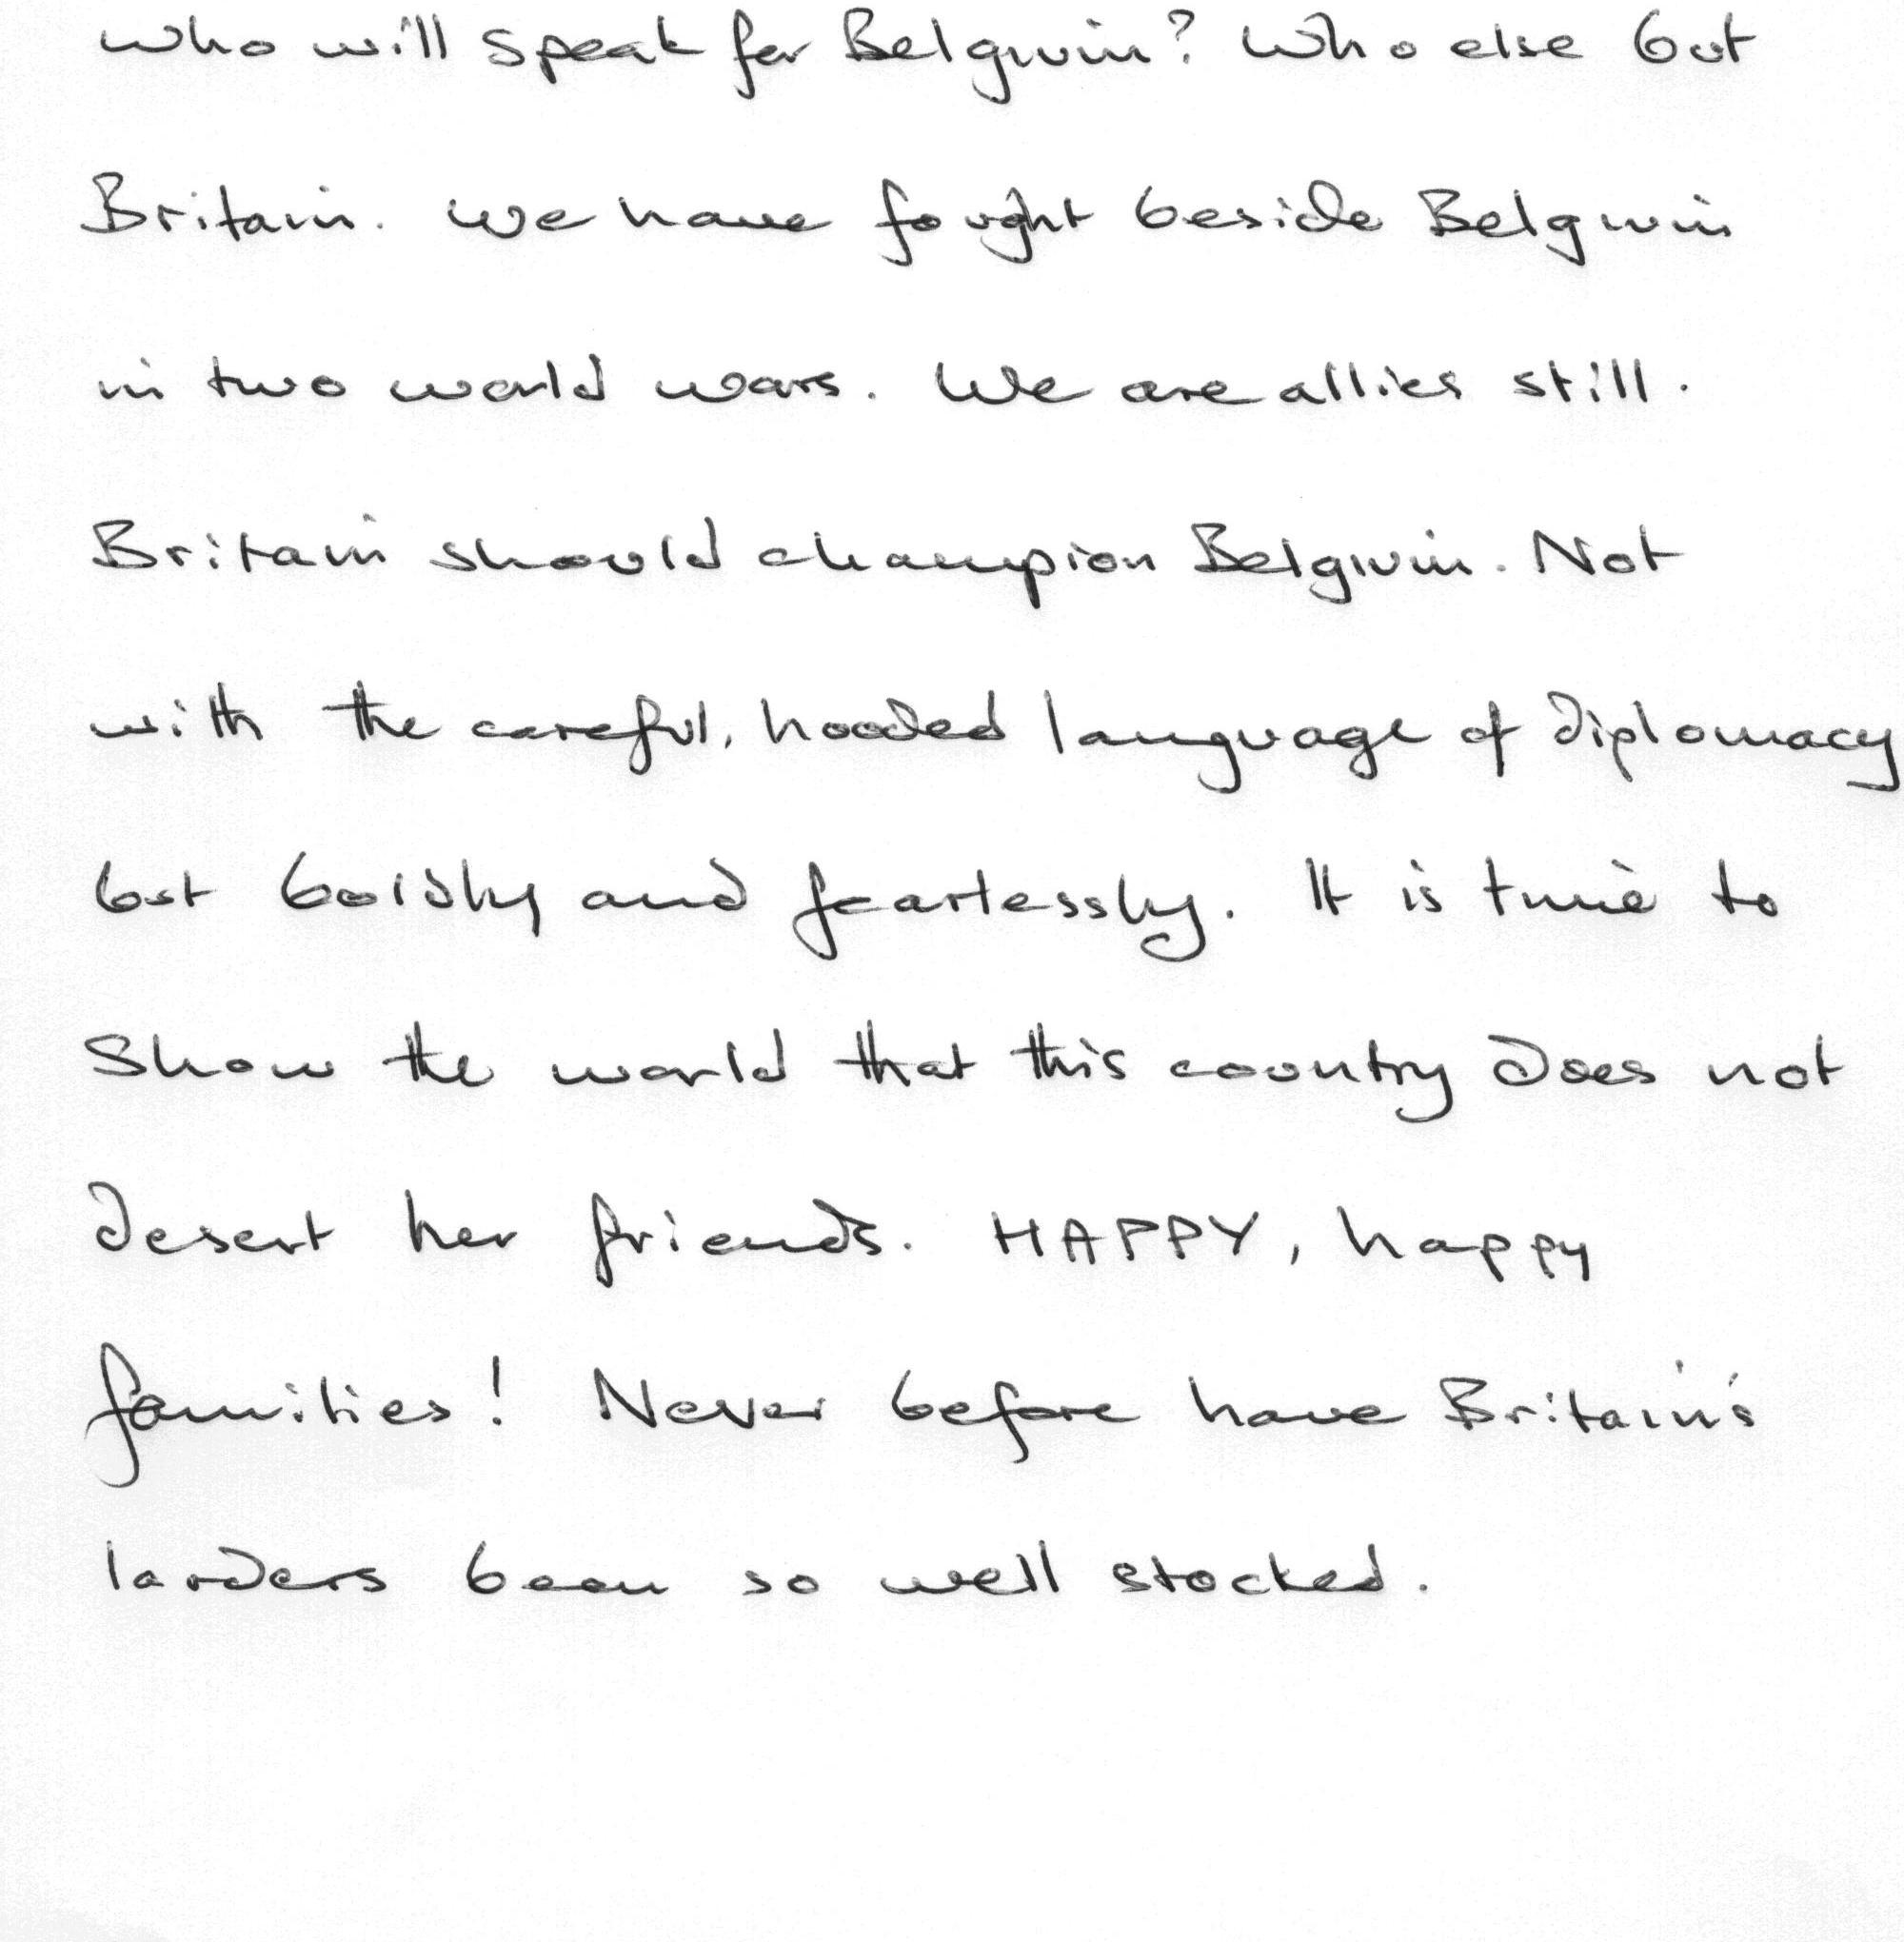 Who will speak for Belgium? Who else but
Britain. We have fought beside Belgium
in two world wars. We are allies still.
Britain should champion Belgium. Not
with the careful, hooded language of diplomacy
but boldly and fearlessly. It is time to
show the world that this country does not
desert her friends. HAPPY, happy
families! Never before have Britain's
larders been so well stocked.